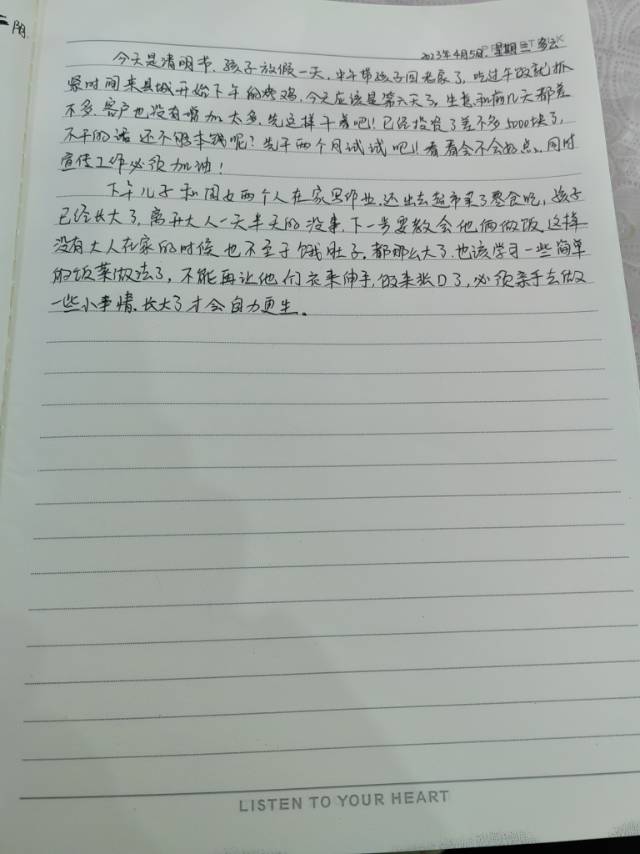 阴
2023年4月5日. 星期三 多云
今天是清明节. 孩子放假一天, 中午带孩子回老家了, 吃过午饭就抓
紧时间来县城开始下午的烤鸡, 今天应该是第六天了, 生意和前几天都差
不多. 客户也没有增加太多. 先这样干着吧! 已经投资了差不多5000块了,
不干的话 还不够本钱呢? 先干两个月试试吧!! 看看会不会好点、同时
宣传工作必须加油!
下午儿子和闺女两个人在家写作业, 还出去超市买了零食吃, 孩子
已经长大了, 离开大人一天半天的没事, 下一步要教会他俩做饭, 这样
没有大人在家的时候 也不至于饿肚子, 都那么大了. 也该学习一些简单
的饭菜做法了, 不能再让他们衣来伸手, 饭来张口了, 必须亲手去做
一些小事情. 长大了才会自力更生.
LISTEN TO YOUR HEART